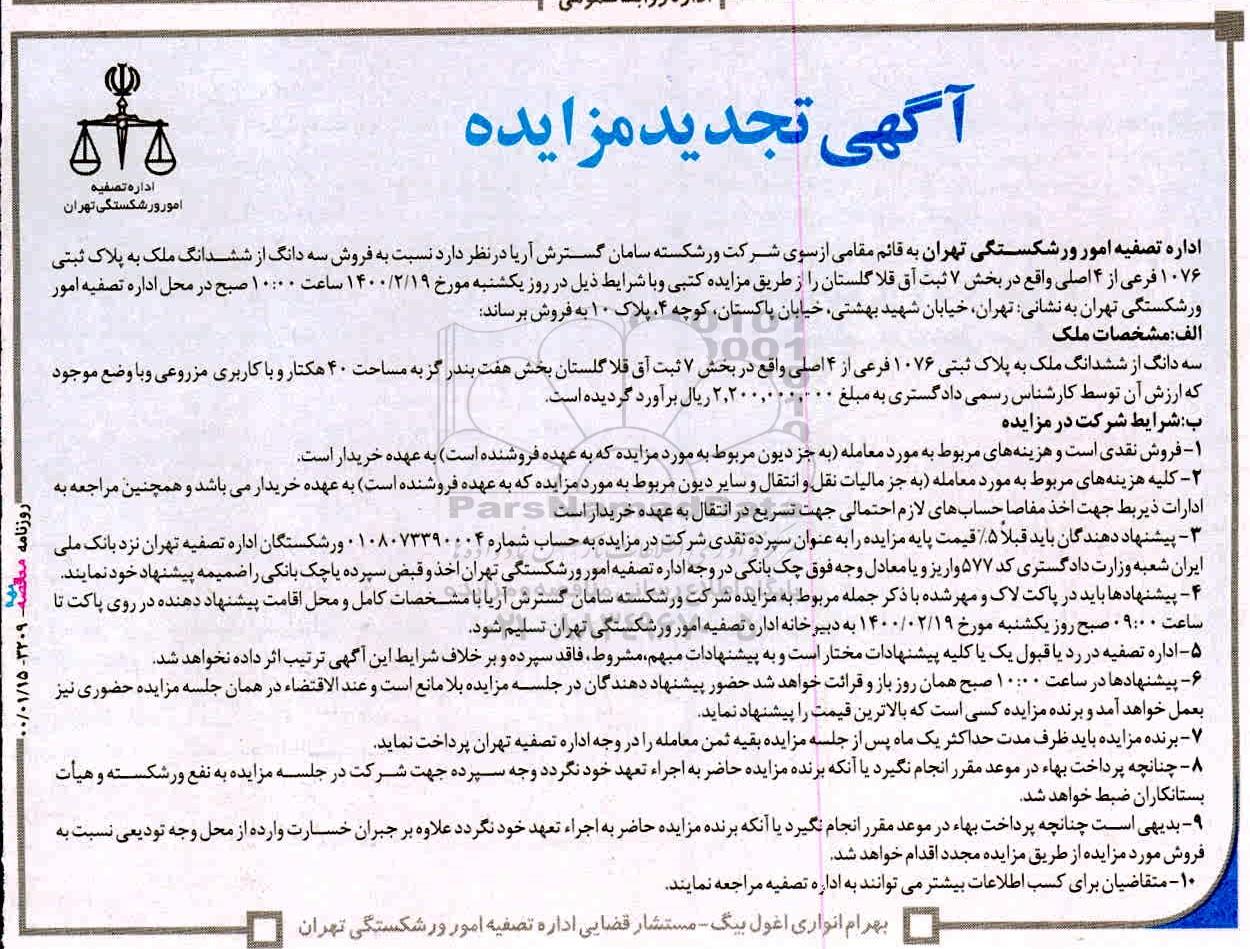 آگهی تجدید مزایده
اداره تصفیه
امور ورشکستگی تهران
اداره تصفیه امور ورشکستگی تهران به قائم مقامی از سوی شرکت ورشکسته سامان گسترش آریا در نظر دارد نسبت به فروش سه دانگ از ششدانگ ملک به پلاک ثبتی
۱۰۷۶ فرعی از ۴ اصلی واقع در بخش ۷ ثبت آق قلا گلستان را از طریق مزایده کتبی و با شرایط ذیل در روز یکشنبه مورخ ۱۴۰۰/۲/۱۹ ساعت ۱۰:۰۰ صبح در محل اداره تصفیه امور
ورشکستگی تهران به نشانی: تهران، خیابان شهید بهشتی، خیابان پاکستان، کوچه ۴، پلاک ۱۰ به فروش برساند:
الف: مشخصات ملک
سه دانگ از ششدانگ ملک به پلاک ثبتی ۱۰۷۶ فرعی از ۴ اصلی واقع در بخش ۷ ثبت آق قلا گلستان بخش هفت بندر گز به مساحت ۴۰ هکتار و با کاربری مزروعی و با وضع موجود
که ارزش آن توسط کارشناس رسمی دادگستری به مبلغ ۲,۲۰۰,۰۰۰,۰۰۰ ریال برآورد گردیده است.
ب: شرایط شرکت در مزایده
۱- فروش نقدی است و هزینه‌های مربوط به مورد معامله (به جز دیون مربوط به مورد مزایده که به عهده فروشنده است) به عهده خریدار است.
۲- کلیه هزینه‌های مربوط به مورد معامله (به جز مالیات نقل و انتقال و سایر دیون مربوط به مورد مزایده که به عهده فروشنده است) به عهده خریدار می باشد و همچنین مراجعه به
ادارات ذیربط جهت اخذ مفاصا حساب‌های لازم احتمالی جهت تسریع در انتقال به عهده خریدار است
۳- پیشنهاد دهندگان باید قبلاً ۵٪ قیمت پایه مزایده را به عنوان سپرده نقدی شرکت در مزایده به حساب شماره ۰۱۰۸۰۷۳۳۹۰۰۰۴ ورشکستگان اداره تصفیه تهران نزد بانک ملی
ایران شعبه وزارت دادگستری کد ۵۷۷ واریز و یا معادل وجه فوق چک بانکی در وجه اداره تصفیه امور ورشکستگی تهران اخذ و قبض سپرده یا چک بانکی را ضمیمه پیشنهاد خود نمایند.
۴- پیشنهادها باید در پاکت لاک و مهر شده با ذکر جمله مربوط به مزایده شرکت ورشکسته سامان گسترش آریا با مشخصات کامل و محل اقامت پیشنهاد دهنده در روی پاکت تا
ساعت ۰۹:۰۰ صبح روز یکشنبه مورخ ۱۴۰۰/۰۲/۱۹ به دبیرخانه اداره تصفیه امور ورشکستگی تهران تسلیم شود.
۵- اداره تصفیه در رد یا قبول یک یا کلیه پیشنهادات مختار است و به پیشنهادات مبهم، مشروط، فاقد سپرده و بر خلاف شرایط این آگهی ترتیب اثر داده نخواهد شد.
۶- پیشنهادها در ساعت ۱۰:۰۰ صبح همان روز باز و قرائت خواهد شد حضور پیشنهاد دهندگان در جلسه مزایده بلامانع است و عند الاقتضاء در همان جلسه مزایده حضوری نیز
بعمل خواهد آمد و برنده مزایده کسی است که بالاترین قیمت را پیشنهاد نماید.
۷- برنده مزایده باید ظرف مدت حداکثر یک ماه پس از جلسه مزایده بقیه ثمن معامله را در وجه اداره تصفیه تهران پرداخت نماید.
۸- چنانچه پرداخت بهاء در موعد مقرر انجام نگیرد یا آنکه برنده مزایده حاضر به اجراء تعهد خود نگردد وجه سپرده جهت شرکت در جلسه مزایده به نفع ورشکسته و هیأت
بستانکاران ضبط خواهد شد.
۹- بدیهی است چنانچه پرداخت بهاء در موعد مقرر انجام نگیرد یا آنکه برنده مزایده حاضر به اجراء تعهد خود نگردد علاوه بر جبران خسارت وارده از محل وجه تودیعی نسبت به
فروش مورد مزایده از طریق مزایده مجدد اقدام خواهد شد.
۱۰- متقاضیان برای کسب اطلاعات بیشتر می توانند به اداره تصفیه مراجعه نمایند.
بهرام انواری اغول بیگ - مستشار قضایی اداره تصفیه امور ورشکستگی تهران
روزنامه مناقصه مزایده - ۳۲۰۹ - ۰۰/۰۱/۱۵
ParsNamadData